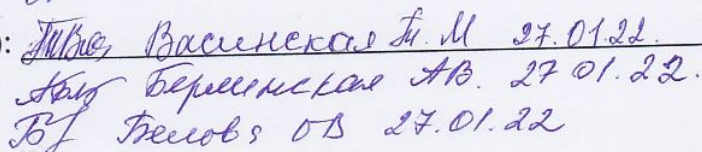 : Васинская Т. М 27.01.22.
Берлинская АВ. 27 01. 22.
Белова ОВ 27.01.22